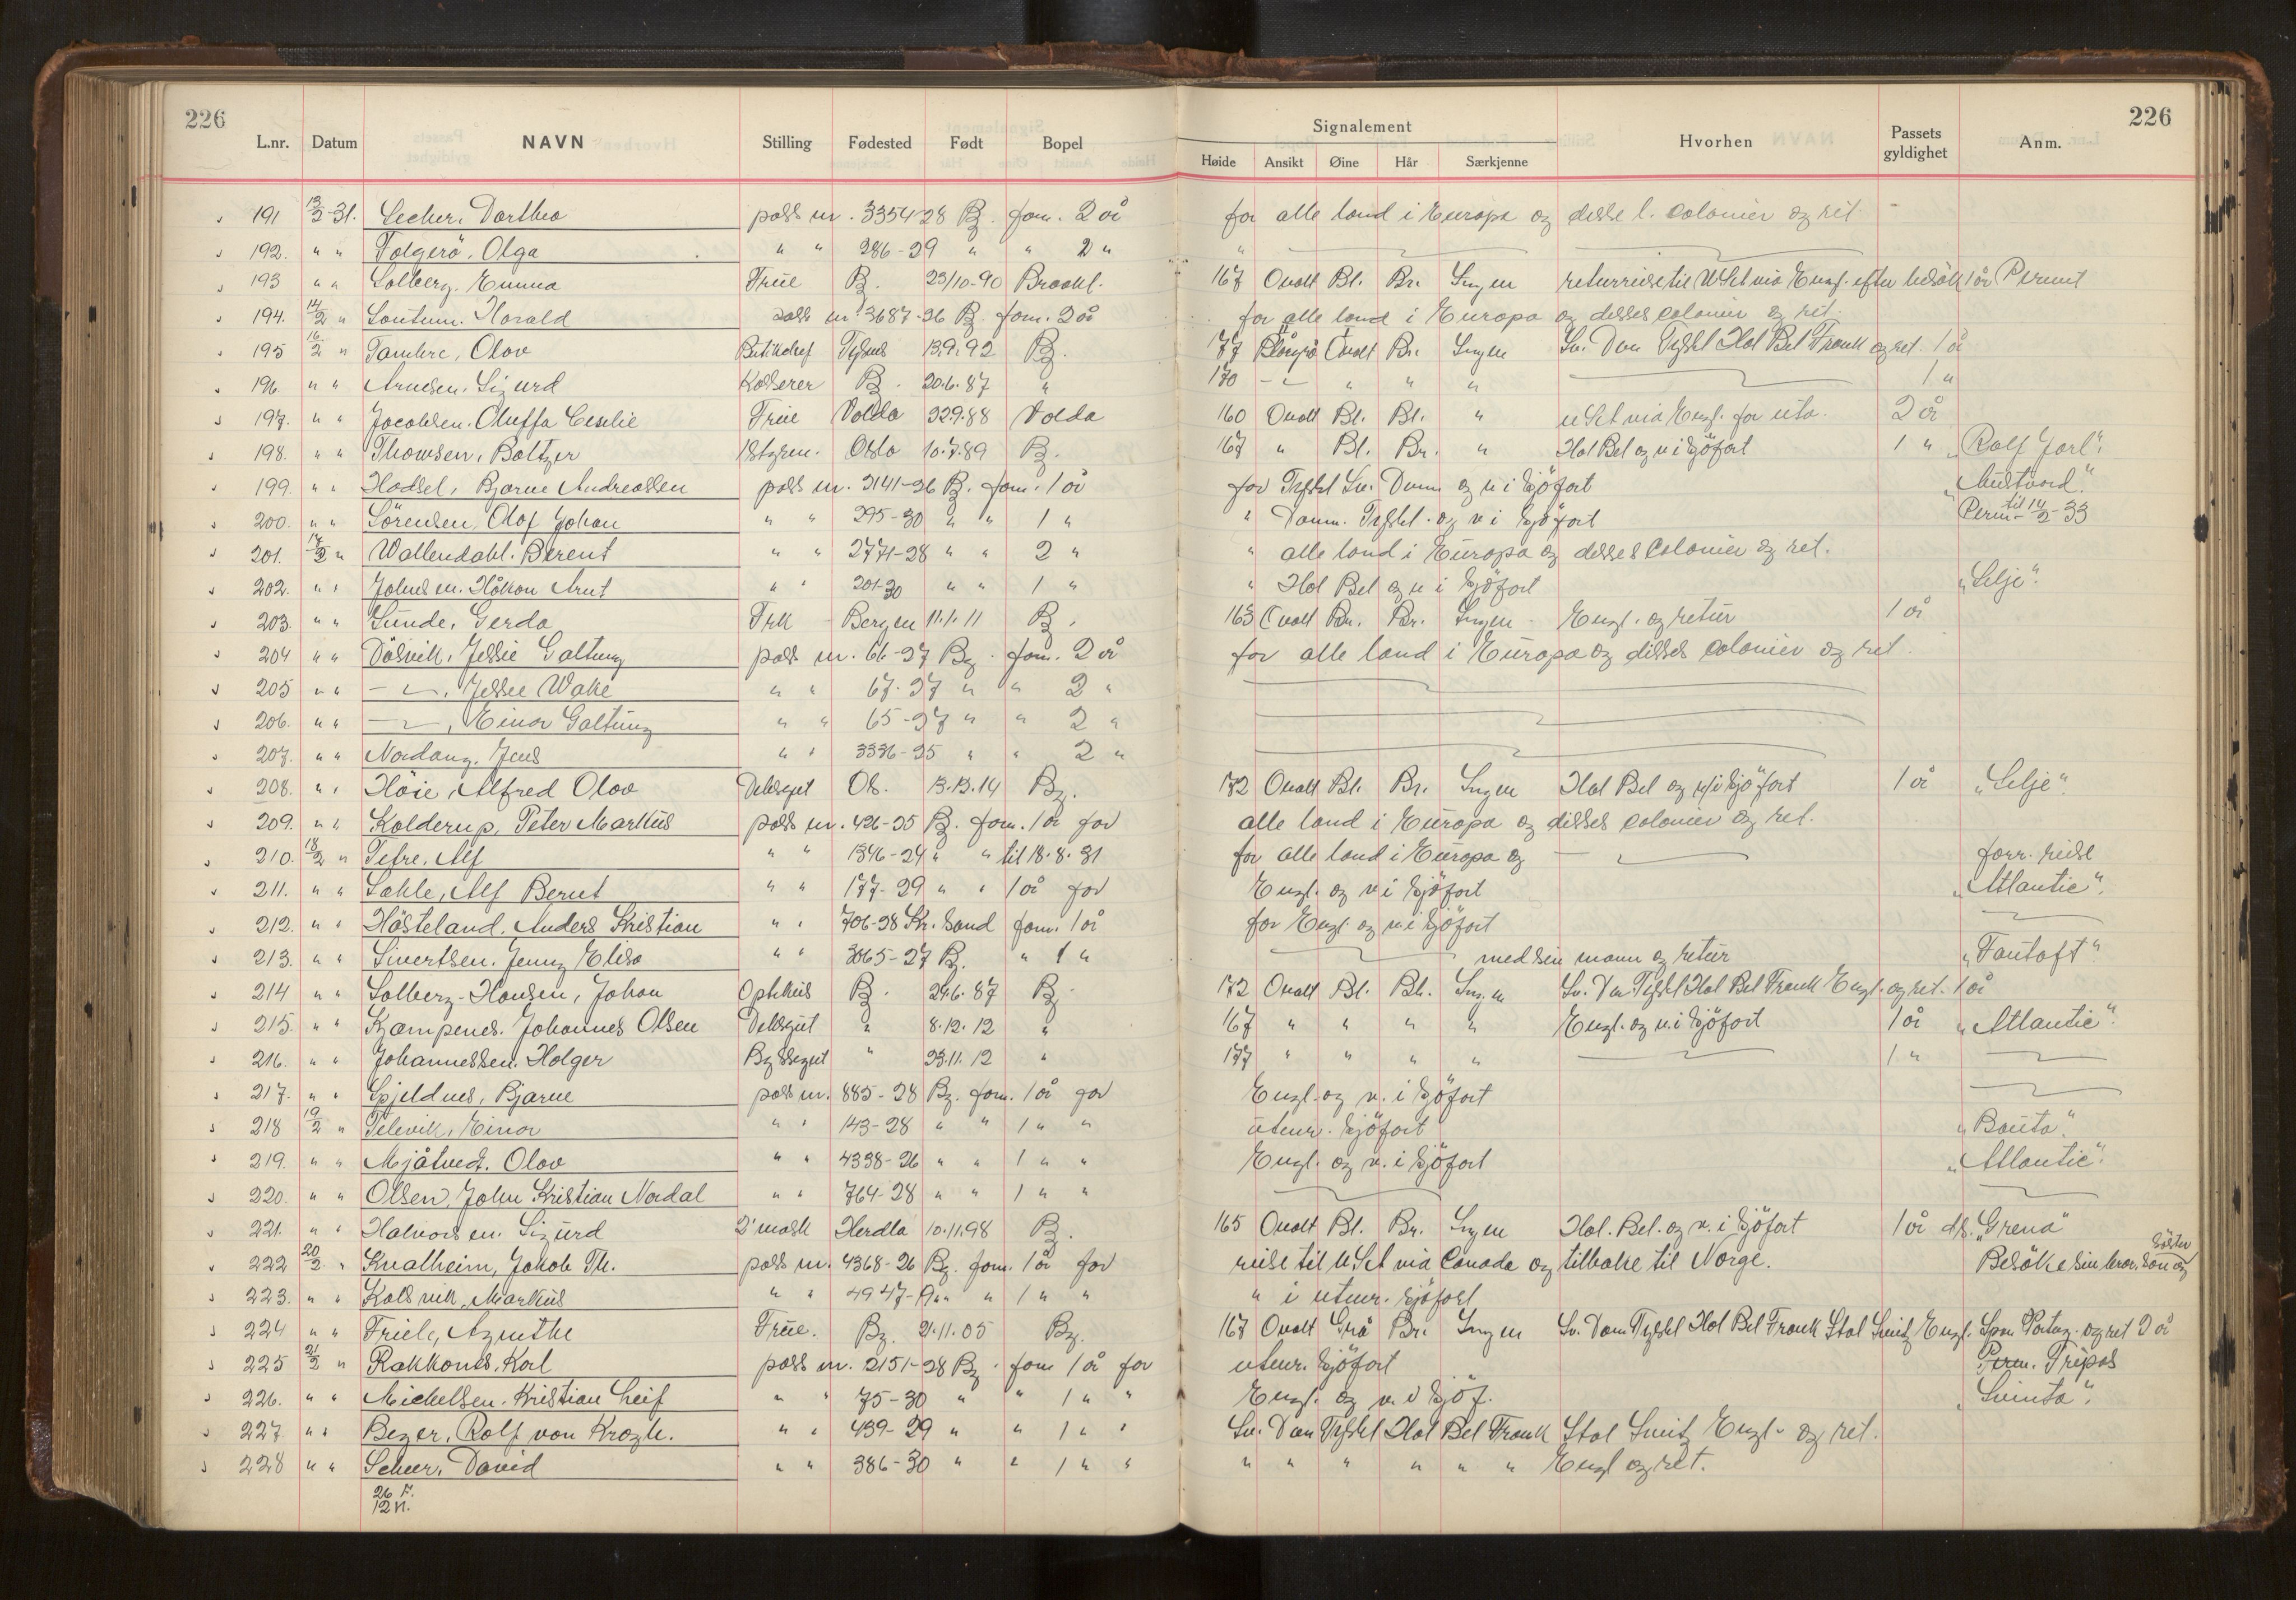 226
226
L.nr. Datum NAVN Stilling Fødested Født Bopel Signalement Hvorhen Passets gyldighet Anm.
Høide Ansikt Øine Hår Særkjenne
191 13/2-31. Lecher, Dorthea pass nr. 3354-28 Bg. forn. 2 år for alle land i Europa og disse l. colonier og ret
192. " " Folgerö, Olga " " 286-29 " " 2 " "
193 " " Solberg, Emma Frue B. 23/10-90 Brookl. 167 Ovalt Bl. Br. Ingen returreise til USet via Engl. efter besök 1 år Permit
194. 14/2 " Lontum. Harald pass nr. 3687-26 B. forn. 2 år for alle land i Europa og disses colonier og ret.
195 16/2 " Tambre, Olav Butikchef Tysnes 13.9.92 Bg. 177 Ovalt Br. Ingen Sv. Dan Tyskl Hol Bel Frank og ret. 1 år
196. " " Arnesen, Sigurd Kasserer B. 20.6.87 " 170 " " " 1 "
197. " " Jacobsen. Oluffa Cecilie Frue Volda 22.9.88 Volda 160 Ovalt Bl. Bl. " uSet via Engl. for utv. 2 år
198. " " Thomsen, Baltzer 1styrm. Oslo 10.7.89 B. 167 " Bl. Br. " Hol Bel og v i Sjöfart 1 " "Rolf Jarl".
199. " " Hadsel, Bjarne Andreassen pass nr. 2141-26 B. forn. 1 år for Tyskl Sv. Danm og v i Sjöfart "Austvard."
200. " " Sörensen, Olaf Johan " " 295-30 " " 1 " " Danm. Tyskl. og v i Sjöfart Perm. til 14/2-33
201. 17/2 " Wallendahl. Berent " " 2771-28 " " 2 " " alle land i Europa og disses Colonier og ret.
202. " " Johnsen. Håkon Arnt " " 201-30 " " 1 " " Hol Bel og v i Sjöfart "Selje".
203. " " Sunde, Gerda Frk Bergen 11.1.11 B. 163 Ovalt Br. Br. Ingen - Engl. og retur 1 år
204 " " Däsvik, Jessie Galtung pass nr. 66-27 Bg. forn. 2 år for alle land i Europa og disses colonier og ret.
205 " " , Jessie Wake " " 67-27 " " 2 "
206. " " , Einar Galtung " " 65-27 " " 2 "
207. " " Nordang. Jens " " 3336-25 " " 2 "
208. " " Höie, Alfred Olav Deksgut Os. 13.12.14 Bg. 172 Ovalt Bl. Br. Ingen Hol Bel og v i Sjöfart 1 år "Selje".
209. " " Kolderup, Peter Markus pass nr. 426-25 B. forn. 1 år for alle land i Europa og disses colonier og ret.
210. 18/2 " Tefre. Alf " " 1346-24 " " til 18.8.31 for alle land i Europa og forr. reise
211. " " Sahle, Alf Bernt " " 177-29 " " 1 år for Engl. og v i Sjöfart "Atlantic".
212. " " Hästeland. Anders Kristian " " 706-28 Kr. sand forn. 1 år for Engl. og v i Sjöfart
213. " " Sivertsen. Jenny Elisa " " 3065-27 B. " 1 " med sin mann og retur "Fantoft"
214 " " Solberg-Hansen, Johan Optikus B. 24.6.87 B. 172 Ovalt Bl. Bl. Ingen Sv. Dan Tyskl Hol Bel Frank Engl. og ret. 1 år
215. " " Kjampenes. Johannes Olsen Deksgut " 8.12.12 " 167 " " " " Engl. og v. i Sjöfart 1 år "Atlantic".
216. " " Johannessen. Holger Byssegut " 23.11.12 " 177 " " " " 1 "
217. " " Gjeldnes, Bjarne pass nr. 885-28 Bg. forn. 1 år for Engl. og v. i Sjöfart
218 19/2 " Televik, Einar " " 143-28 " " 1 " " utenr. Sjöfart "Bauta".
219. " " Mjåtvedt. Olav " " 4338-26 " " 1 " " Engl. og v. i Sjöfart "Atlantic".
220. " " Olsen, John Kristian Nordal " " 764-28 " " 1 " "
221. " " Halvorsen. Sigurd 2' mask Herdla 10.11.98 B. 165 Ovalt Bl. Br. Ingen Hol. Bel. og v. i Sjöfart 1 år ds. "Grena"
222 20/2 " Kvalheim, Jakob Th. pass nr. 4368-26 Bg. forn. 1 år for reise til uSet via Canada og tilbake til Norge. Besöke sin bror, sön og söster
223. " " Kalsvik, Markus " " 4947- " " 1 " " " i utenr. Sjöfart
224 " " Friele, Agnethe Frue. Bg. 21.11.05 Bg. 167 Ovalt Grå Br. Ingen Sv. Dan Tyskl Hol Bel Frank Ital Sveitz Engl. Span Portug. og ret 2 år
225 21/2 " Rakkones, Karl pass nr. 2151-28 Bg. forn 1 år for utenr. Sjöfart Perm. Tripos
226. " " Michelsen. Kristian Leif " " 75-30 " " 1 " " Engl. og v. i Sjöf. "Svinta".
227 " " Beyer, Rolf von Krogh. " " 439-29 " " 1 " " Sv. Dan Tyskl Hol Bel Frank Ital Sveitz Engl. og ret.
228 " " Scheer, David " " 386-30 " " 1 " " " " " " " " Engl og ret.
26 F.
12 N.